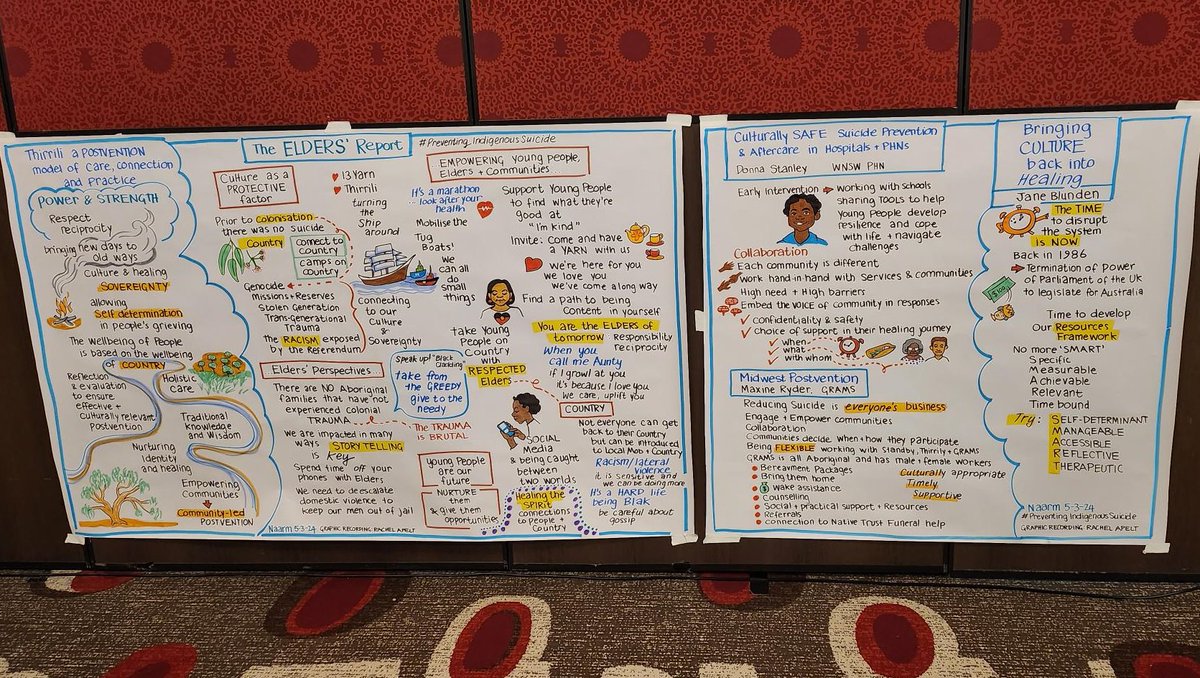 Thirrili a POSTVENTION
model of Care, connection
and Practice
POWER & STRENGTH
Respect
reciprocity
bringing new days to
old ways
Culture & healing
SOVEREIGNTY
allowing
Self determination
in people's grieving
The wellbeing of People
is based on the wellbeing
of COUNTRY
Reflection
& evaluation
to ensure
effective +
culturally relevant
Postvention
Holistic
care
Traditional
Knowledge
and Wisdom
Nurturing
Identity
and healing
Empowering
Communities
Community-led
POSTVENTION
The ELDERS' REPORT
#Preventing_Indigenous Suicide
Culture as a
PROTECTIVE
factor
13 Yarn
Thirrili
turning
the
Ship
around
Prior to colonisation
there was no suicide
Country
connect to
country
camps on
country
Genocide
Missions + Reserves
Stolen Generation
Trans-Generational
Trauma
The RACISM exposed
by the Referendum
Connecting
to our
Culture
&
Sovereignty
It's a marathon
look after your
health
Mobilise the
Tug
Boats!
we
can all
do
small
things
Elders' Perspectives
There are NO Aboriginal
families that have not
experienced colonial
TRAUMA
The TRAUMA
is BRUTAL
we are impacted in many
ways STORY TELLING
is Key
Spend time off your
phones with Elders
We need to deescalate
domestic violence to
keep our men out of jail
Speak up! "Black
take from
the GREEDY
give to the
needy
Young People
are our
future
NURTURE
them
& give them
opportunities
Naarm 5-3-24 GRAPHIC RECORDING RACHEL APELT
EMPOWERING young people,
Elders + Communities
Support Young People
to find what they're
good at
"I'm kind"
Invite: Come and have
a YARN with us
we're here for you
we love you
we've come along way
Find a path to being
Content in yourself
You are the ELDERS of
tomorrow Responsibility
reciprocity
take Young
People on
Country
with
RESPECTED
Elders
When you
call me Aunty
if I growl at you
it's because I love you
We care, uplift you
COUNTRY
Not everyone can get
back to their Country
but can be introduced
to Local Mob + Country
SOCIAL
Media
& being caught
between
two worlds
Racism/lateral
violence
it is sensitive and
we can be doing more
It's a HARD life
being Blak
be careful about
gossip
Healing the
SPIRIT
connections
to people +
Country
Culturally SAFE Suicide Prevention
& Aftercare in Hospitals + PHNs
Donna Stanley WNSW PHN
Early Intervention
working with schools
sharing TOOLS to help
Young People develop
resilience and cope
with life + navigate
challenges
Collaboration
Each community is different
Work hand in hand with Services & communities
High need + High barriers
Embed the VOICE of community in responses
Confidentiality & safety
Choice of support in their healing journey
when
what
with whom
Midwest Postvention
Maxine Ryder, GRAMS
Reducing Suicide is everyone's business
Engage + Empower communities
Collaboration
Communities decide when + how they participate
Being FLEXIBLE working with Standby, Thirrili + GRAMS
GRAMS is all Aboriginal and has male + female workers
Bereavement Packages
Bring them home
Wake assistance
Counselling
Social + practical support + Resources
Referrals
connection to Native Trust Funeral help
Culturally appropriate
Timely
Supportive
Bringing
CULTURE
back into
Healing
Jane Blunden
The TIME
to disrupt
the system
IS NOW
Back in 1986
Termination of Power
of Parliament of the UK
to legislate for Australia
Time to develop
Our Resources
Framework
No more 'SMART'
Specific
Measurable
Achievable
Relevant
Time bound
Try: SELF-DETERMINANT
MANAGEABLE
ACCESSIBLE
REFLECTIVE
THERAPEUTIC
Naarm 5-3-24
#Preventing Indigenous Suicide
GRAPHIC RECORDING RACHEL APELT